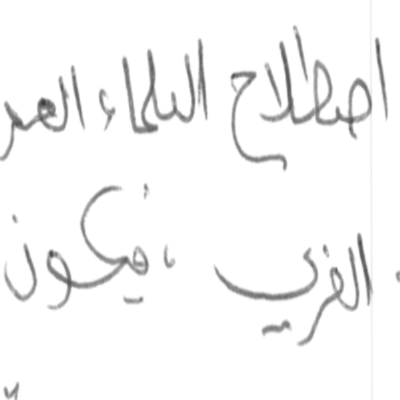 اصطلاح العلماء العر
الغربي ، فيكون